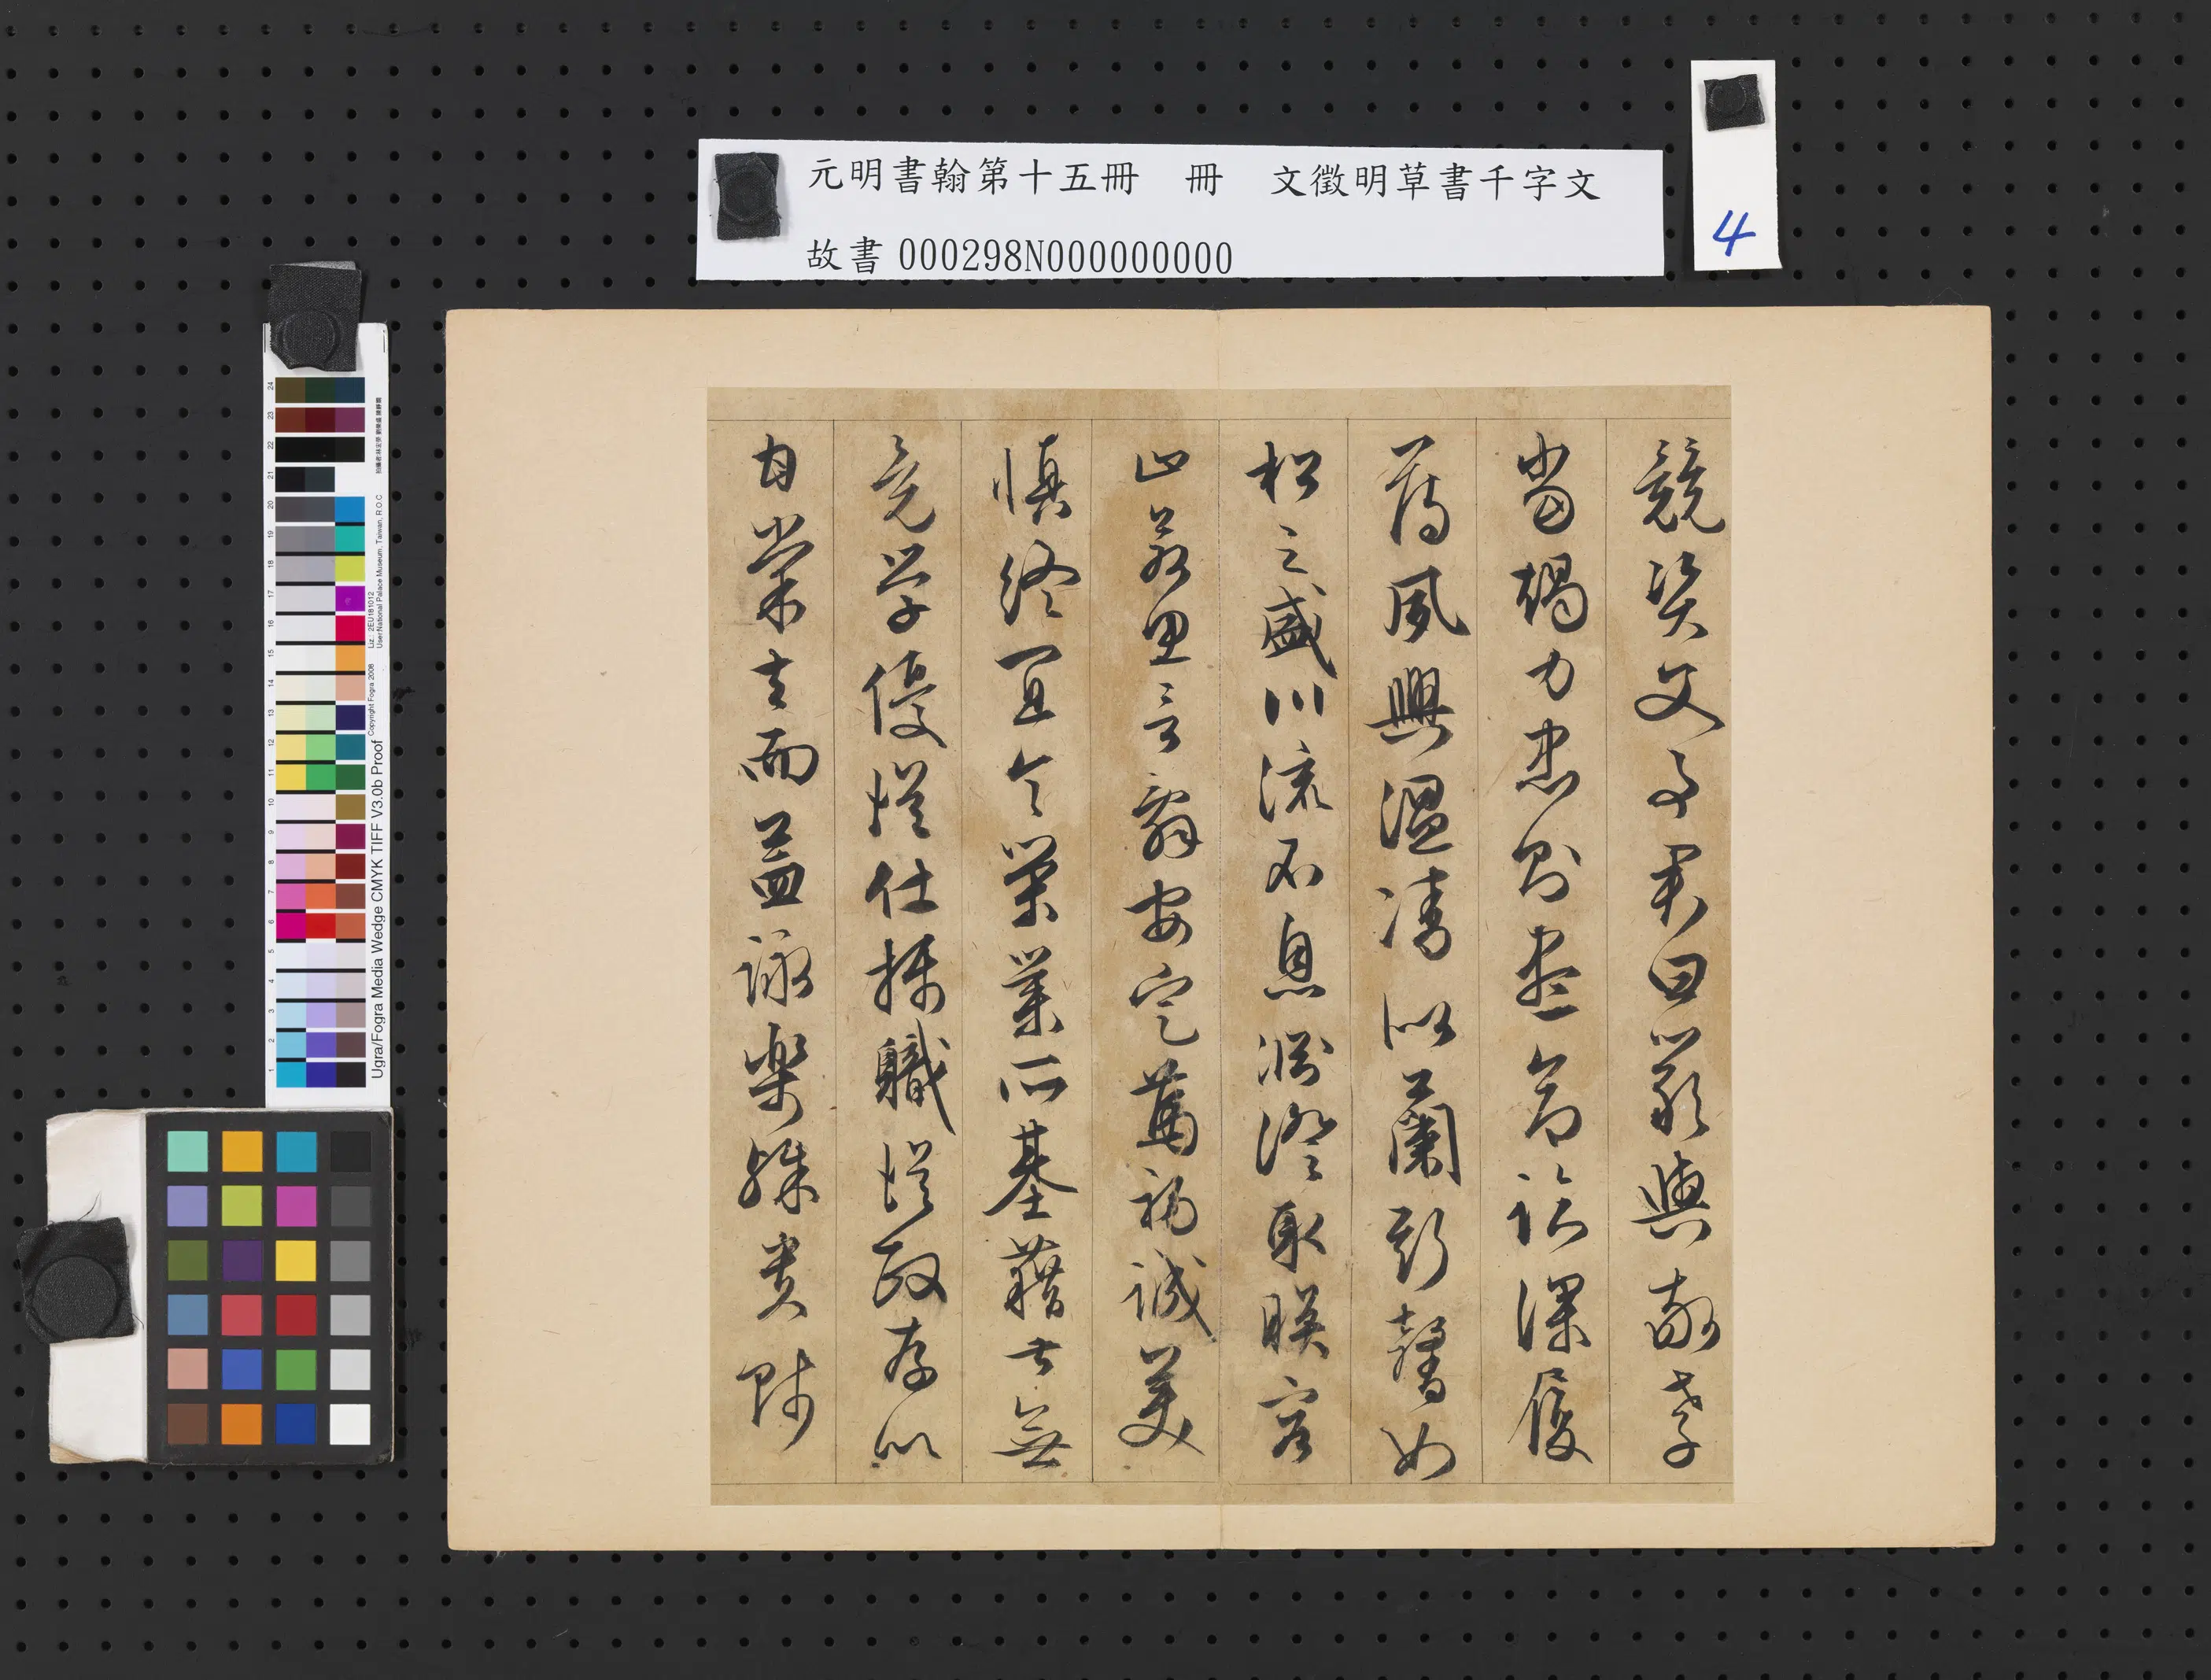 元明書翰第十五冊　冊　文徵明草書千字文
故書 000298N000000000
4
競資父事君曰嚴與敬孝
當竭力忠則盡命臨深履
薄夙興溫清似蘭斯馨如
松之盛川流不息淵澄取映容
止若思言辭安定篤初誠美
慎終宜令榮業所基藉甚無
竟學優登仕攝職從政存以
甘棠去而益詠樂殊貴賤
Ugra/Fogra Media Wedge CMYK TIFF V3.0b Proof
Copyright Fogra 2008
Liz.: 2EU181012
User:National Palace Museum, Taiwan, R.O.C
24
23
22
21
20
19
18
17
16
15
14
13
12
11
10
9
8
7
6
5
4
3
2
1